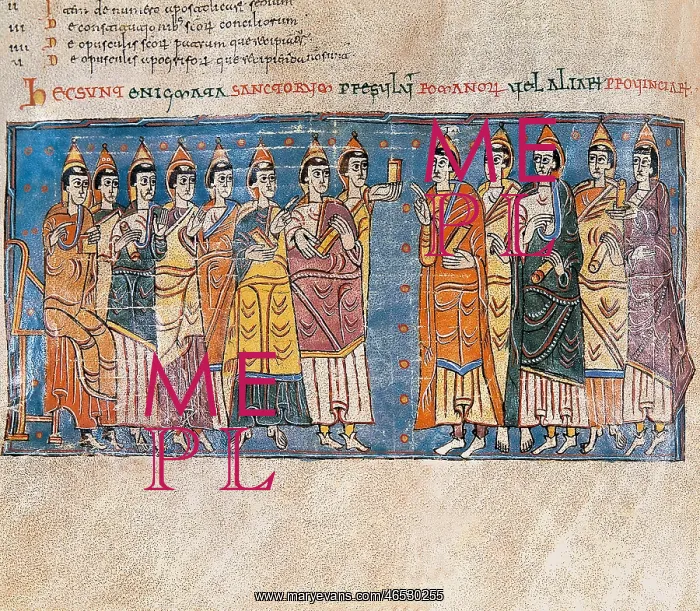 ii
iii De constitutionibus scor conciliorum
iiii De opusculis scor patrum que recipiantur
v De opusculis apogrifor que recipienda non sunt
HEC SUNT ENIGMATA SANCTORUM PRESULUM ROMANOR VEL ALIAR PROVINCIAR
ME
PL
ME
PL
www.maryevans.com/46530255